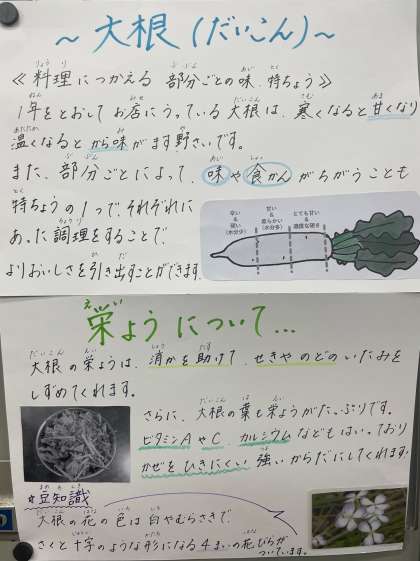 ～大根(だいこん)～
≪料理につかえる 部分ごとの味、特ちょう≫
1年をとおしてお店にうっている大根は、寒くなると甘くなり
温くなるとから味がます野さいです。
また、部分ごとによって、味や食かんがちがうことも
特ちょうの1つで、それぞれに
あった調理をすることで、
よりおいしさを引き出すことができます。
栄ようについて...
大根の栄ようは、消かを助けて、せきやのどのいたみを
しずめてくれます。
さらに、大根の葉も栄ようがたっぷりです。
ビタミンAやC、カルシウムなどもはいっており
かぜをひきにくい強いからだにしてくれます。
☆豆知識
大根の花の色は白やむらさきで、
さくと十字のような形になる4まいの花びらが
ついています。